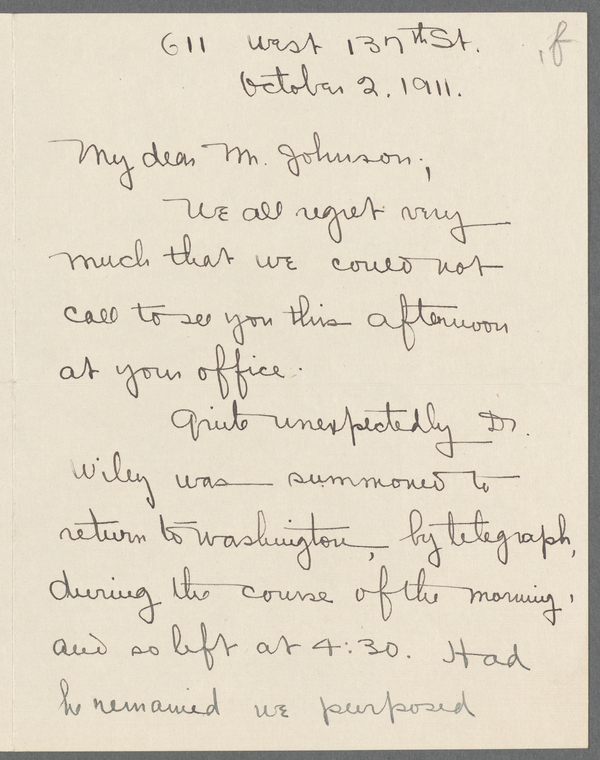 611 West 137th St.
October 2, 1911.
My dear Mr. Johnson;
We all regret very
much that we could not
call to see you this afternoon
at your office.
Quite unexpectedly Dr.
Wiley was summoned to
return to Washington, by telegraph,
during the course of the morning,
and so left at 4:30. Had
he remained we purposed